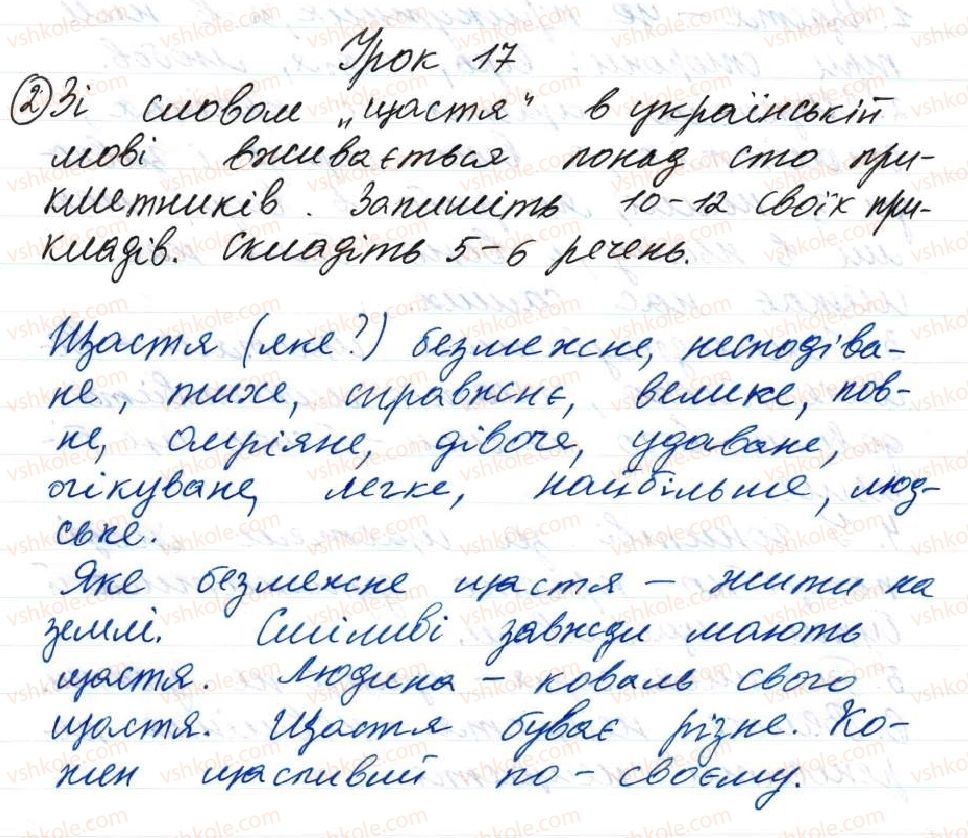 Урок 17
② Зі словом „щастя" в українській
мові вживається понад сто при-
кметників. Запишіть 10-12 своїх при-
кладів. Складіть 5-6 речень.
Щастя (яке?) безмежне, несподіва-
не, тихе, справжнє, велике, пов-
не, омріяне, дівоче, удаване,
очікуване, легке, найбільше, люд-
ське.
Яке безмежне щастя – жити на
землі. Сміливі завжди мають
щастя. Людина – коваль свого
щастя. Щастя буває різне. Ко-
жен щасливий по-своєму.